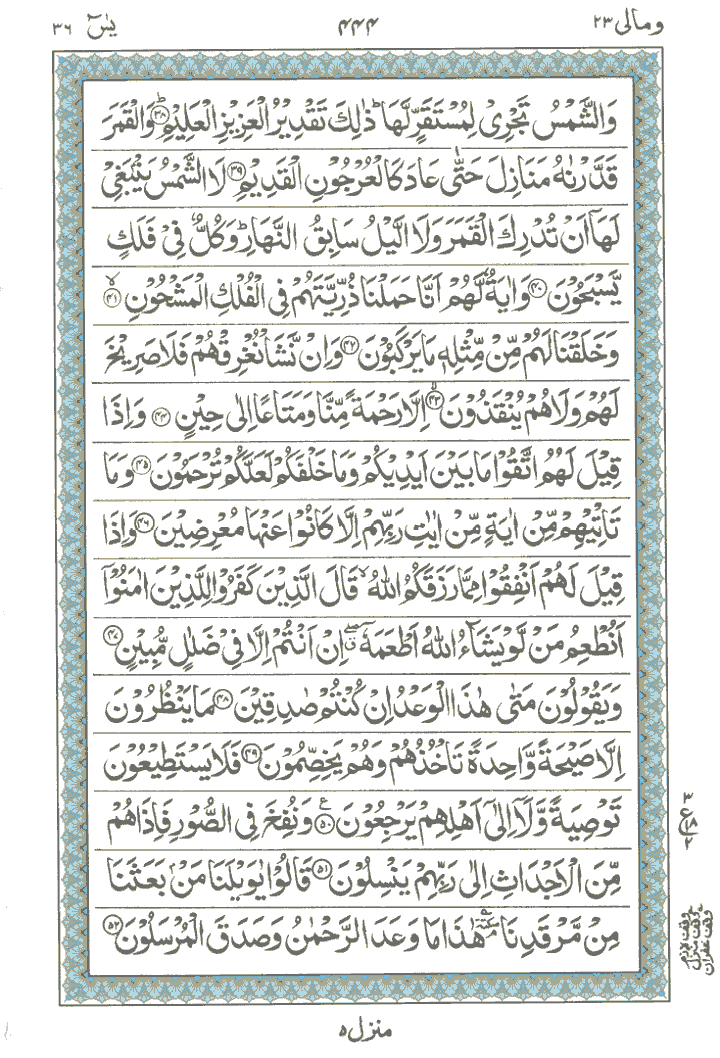 ومالی ٢٣ ۴۴۴ یٰسٓ ٣٦
وَالشَّمْسُ تَجْرِیْ لِمُسْتَقَرٍّ لَّهَا ؕ ذٰلِكَ تَقْدِیْرُ الْعَزِیْزِ الْعَلِیْمِ ؕ﴿۳۸﴾ وَالْقَمَرَ
قَدَّرْنٰهُ مَنَازِلَ حَتّٰی عَادَ كَالْعُرْجُوْنِ الْقَدِیْمِ ﴿۳۹﴾ لَا الشَّمْسُ یَنْۢبَغِیْ
لَهَاۤ اَنْ تُدْرِكَ الْقَمَرَ وَلَا الَّیْلُ سَابِقُ النَّهَارِ ؕ وَكُلٌّ فِیْ فَلَكٍ
یَّسْبَحُوْنَ ﴿۴۰﴾ وَاٰیَةٌ لَّهُمْ اَنَّا حَمَلْنَا ذُرِّیَّتَهُمْ فِی الْفُلْكِ الْمَشْحُوْنِ ۙ﴿۴۱﴾
وَخَلَقْنَا لَهُمْ مِّنْ مِّثْلِهٖ مَا یَرْكَبُوْنَ ﴿۴۲﴾ وَاِنْ نَّشَاْ نُغْرِقْهُمْ فَلَا صَرِیْخَ
لَهُمْ وَلَا هُمْ یُنْقَذُوْنَ ۙ﴿۴۳﴾ اِلَّا رَحْمَةً مِّنَّا وَمَتَاعًا اِلٰی حِیْنٍ ﴿۴۴﴾ وَاِذَا
قِیْلَ لَهُمُ اتَّقُوْا مَا بَیْنَ اَیْدِیْكُمْ وَمَا خَلْفَكُمْ لَعَلَّكُمْ تُرْحَمُوْنَ ﴿۴۵﴾ وَمَا
تَاْتِیْهِمْ مِّنْ اٰیَةٍ مِّنْ اٰیٰتِ رَبِّهِمْ اِلَّا كَانُوْا عَنْهَا مُعْرِضِیْنَ ﴿۴۶﴾ وَاِذَا
قِیْلَ لَهُمْ اَنْفِقُوْا مِمَّا رَزَقَكُمُ اللّٰهُ ۙ قَالَ الَّذِیْنَ كَفَرُوْا لِلَّذِیْنَ اٰمَنُوْۤا
اَنُطْعِمُ مَنْ لَّوْ یَشَآءُ اللّٰهُ اَطْعَمَهٗۤ ۖۗ اِنْ اَنْتُمْ اِلَّا فِیْ ضَلٰلٍ مُّبِیْنٍ ﴿۴۷﴾
وَیَقُوْلُوْنَ مَتٰی هٰذَا الْوَعْدُ اِنْ كُنْتُمْ صٰدِقِیْنَ ﴿۴۸﴾ مَا یَنْظُرُوْنَ
اِلَّا صَیْحَةً وَّاحِدَةً تَاْخُذُهُمْ وَهُمْ یَخِصِّمُوْنَ ﴿۴۹﴾ فَلَا یَسْتَطِیْعُوْنَ
تَوْصِیَةً وَّلَاۤ اِلٰۤی اَهْلِهِمْ یَرْجِعُوْنَ ﴿۵۰﴾ع وَنُفِخَ فِی الصُّوْرِ فَاِذَا هُمْ
مِّنَ الْاَجْدَاثِ اِلٰی رَبِّهِمْ یَنْسِلُوْنَ ﴿۵۱﴾ قَالُوْا یٰوَیْلَنَا مَنْۢ بَعَثَنَا
مِنْ مَّرْقَدِنَا ٚۘ هٰذَا مَا وَعَدَ الرَّحْمٰنُ وَصَدَقَ الْمُرْسَلُوْنَ ﴿۵۲﴾
٣ ع ١٨ ٢
وقف لازم
وقف منزل
وقف غفران
منزل ٥